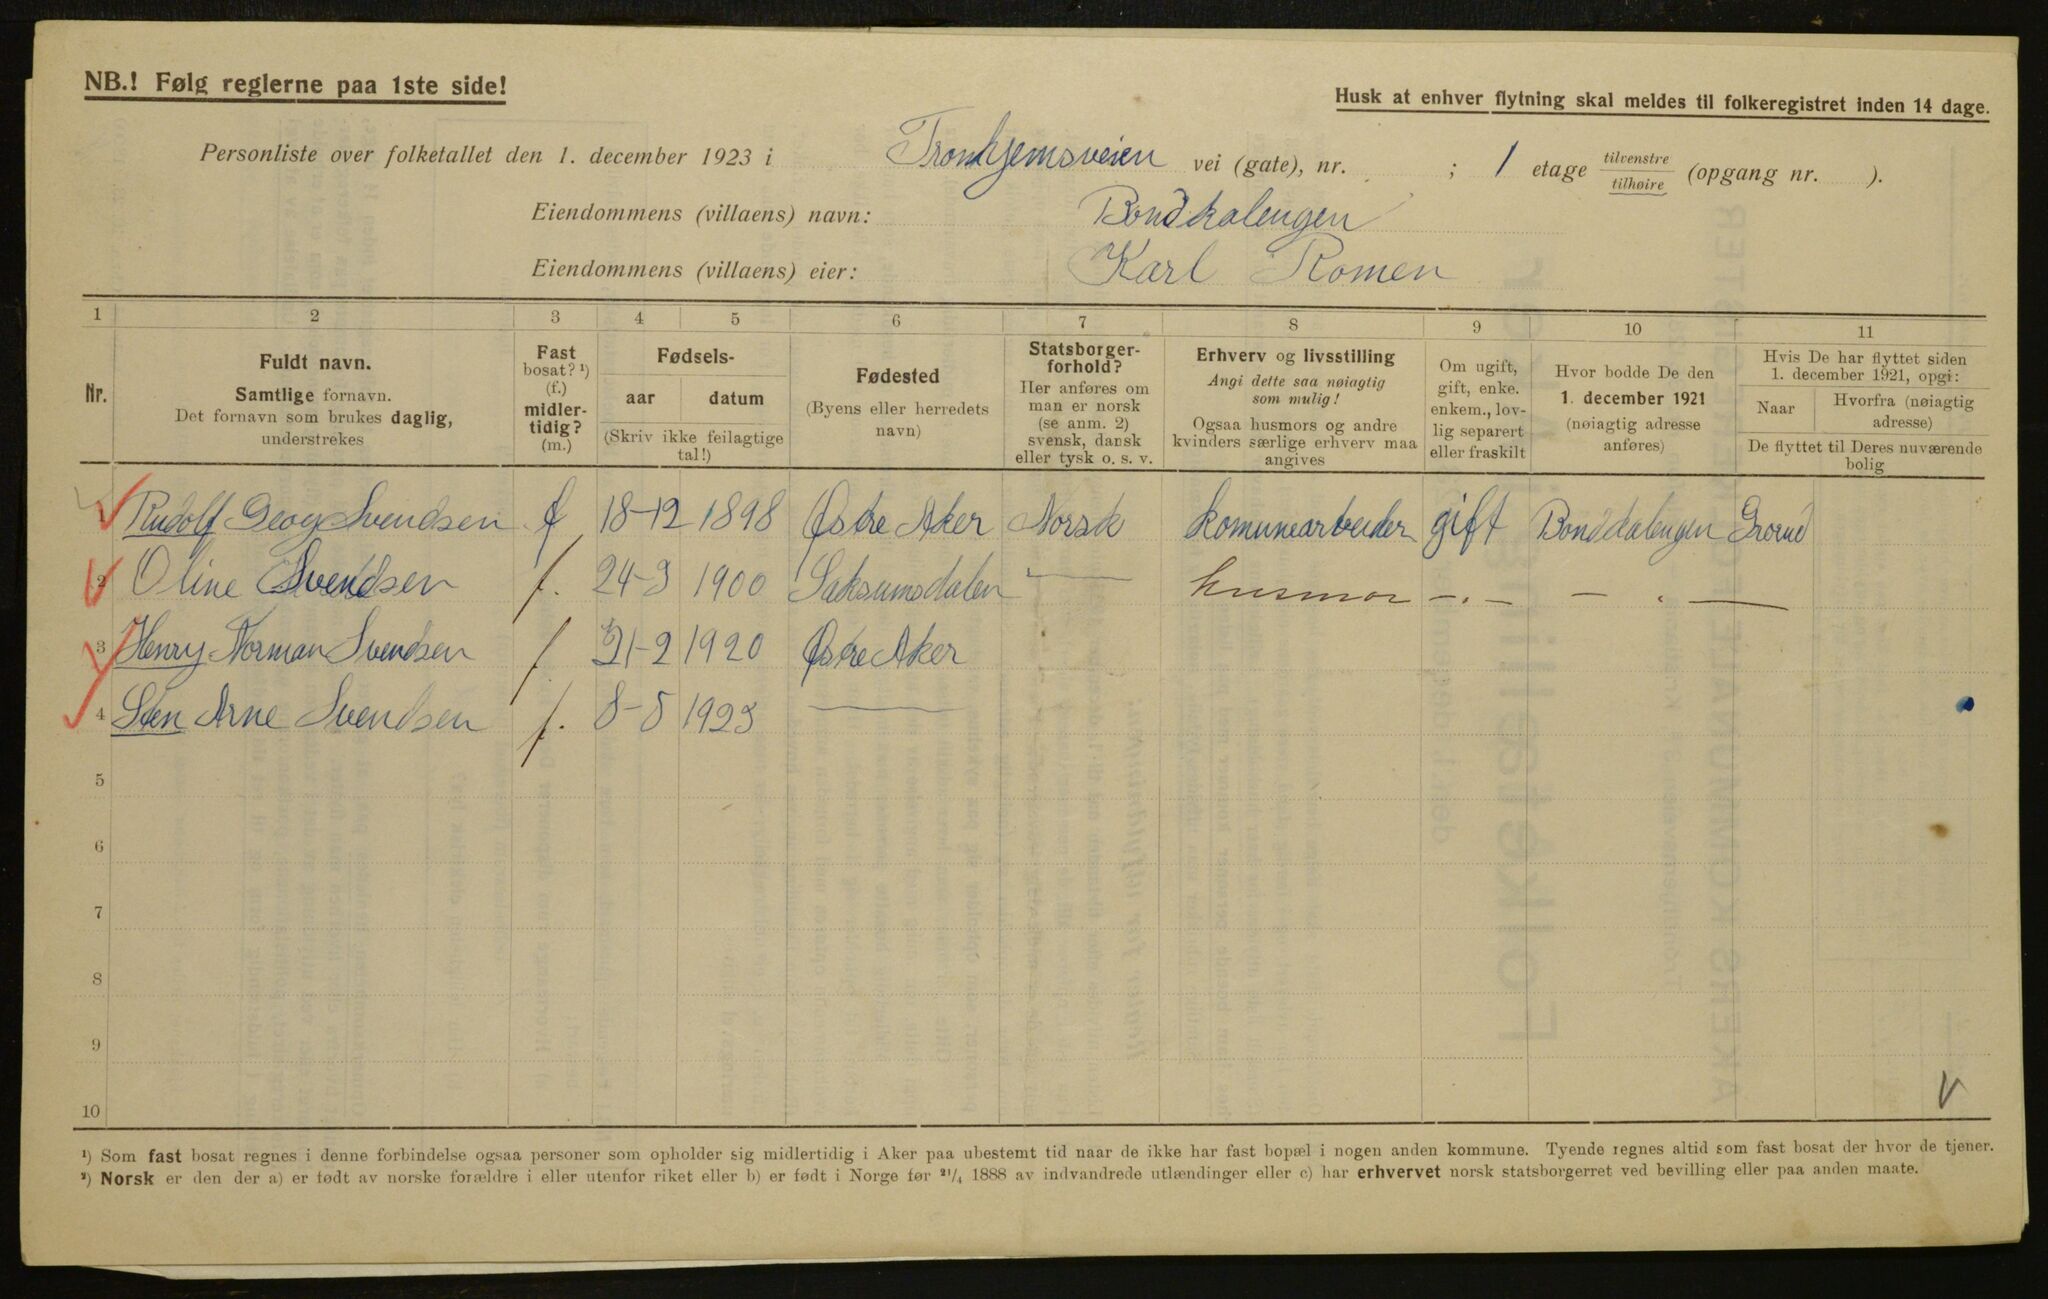 NB.! Følg reglerne paa 1ste side!
Husk at enhver flytning skal meldes til folkeregistret inden 14 dage.
Personliste over folketallet den 1. december 1923 i Tronhjemsveien vei (gate), nr. ; 1 etage tilvenstre tilhøire (opgang nr. ).
Eiendommens (villaens) navn: Bonddalengen
Eiendommens (villaens) eier: Karl Romen
1 2 3 4 5 6 7 8 9 10 11
Nr.
Fuldt navn.
Samtlige fornavn.
Det fornavn som brukes daglig,
understrekes
Fast
bosat? ¹)
(f.)
midler-
tidig?
(m.)
Fødsels-
aar datum
(Skriv ikke feilagtige
tal!)
Fødested
(Byens eller herredets
navn)
Statsborger-
forhold?
Her anføres om
man er norsk
(se anm. 2)
svensk, dansk
eller tysk o. s. v.
Erhverv og livsstilling
Angi dette saa nøiagtig
som mulig!
Ogsaa husmors og andre
kvinders særlige erhverv maa
angives
Om ugift,
gift, enke.
enkem., lov-
lig separert
eller fraskilt
Hvor bodde De den
1. december 1921
(nøiagtig adresse
anføres)
Hvis De har flyttet siden
1. december 1921, opgi:
Naar Hvorfra (nøiagtig
adresse)
De flyttet til Deres nuværende
bolig
1 Rudolf Georg Svendsen f 18-12 1898 Østre Aker Norsk komunearbeider gift Bonddalengen Grorud
2 Oline Svendsen f. 24-3 1900 Saksumsdalen — husmor -.- - . —
3 Henry Norman Svendsen f 21-2 1920 Østre Aker
4 Sten Arne Svendsen f. 8-5 1923 —
5
6
7
8
9
10
¹) Som fast bosat regnes i denne forbindelse ogsaa personer som opholder sig midlertidig i Aker paa ubestemt tid naar de ikke har fast bopæl i nogen anden kommune. Tyende regnes altid som fast bosat der hvor de tjener.
²) Norsk er den der a) er født av norske forældre i eller utenfor riket eller b) er født i Norge før ²¹/₄ 1888 av indvandrede utlændinger eller c) har erhvervet norsk statsborgerret ved bevilling eller paa anden maate.